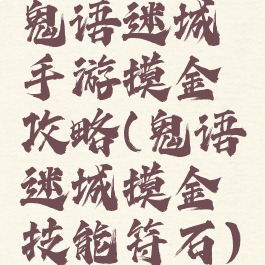 鬼语迷城
手游摸金
攻略(鬼语
迷城摸金
技能符石)